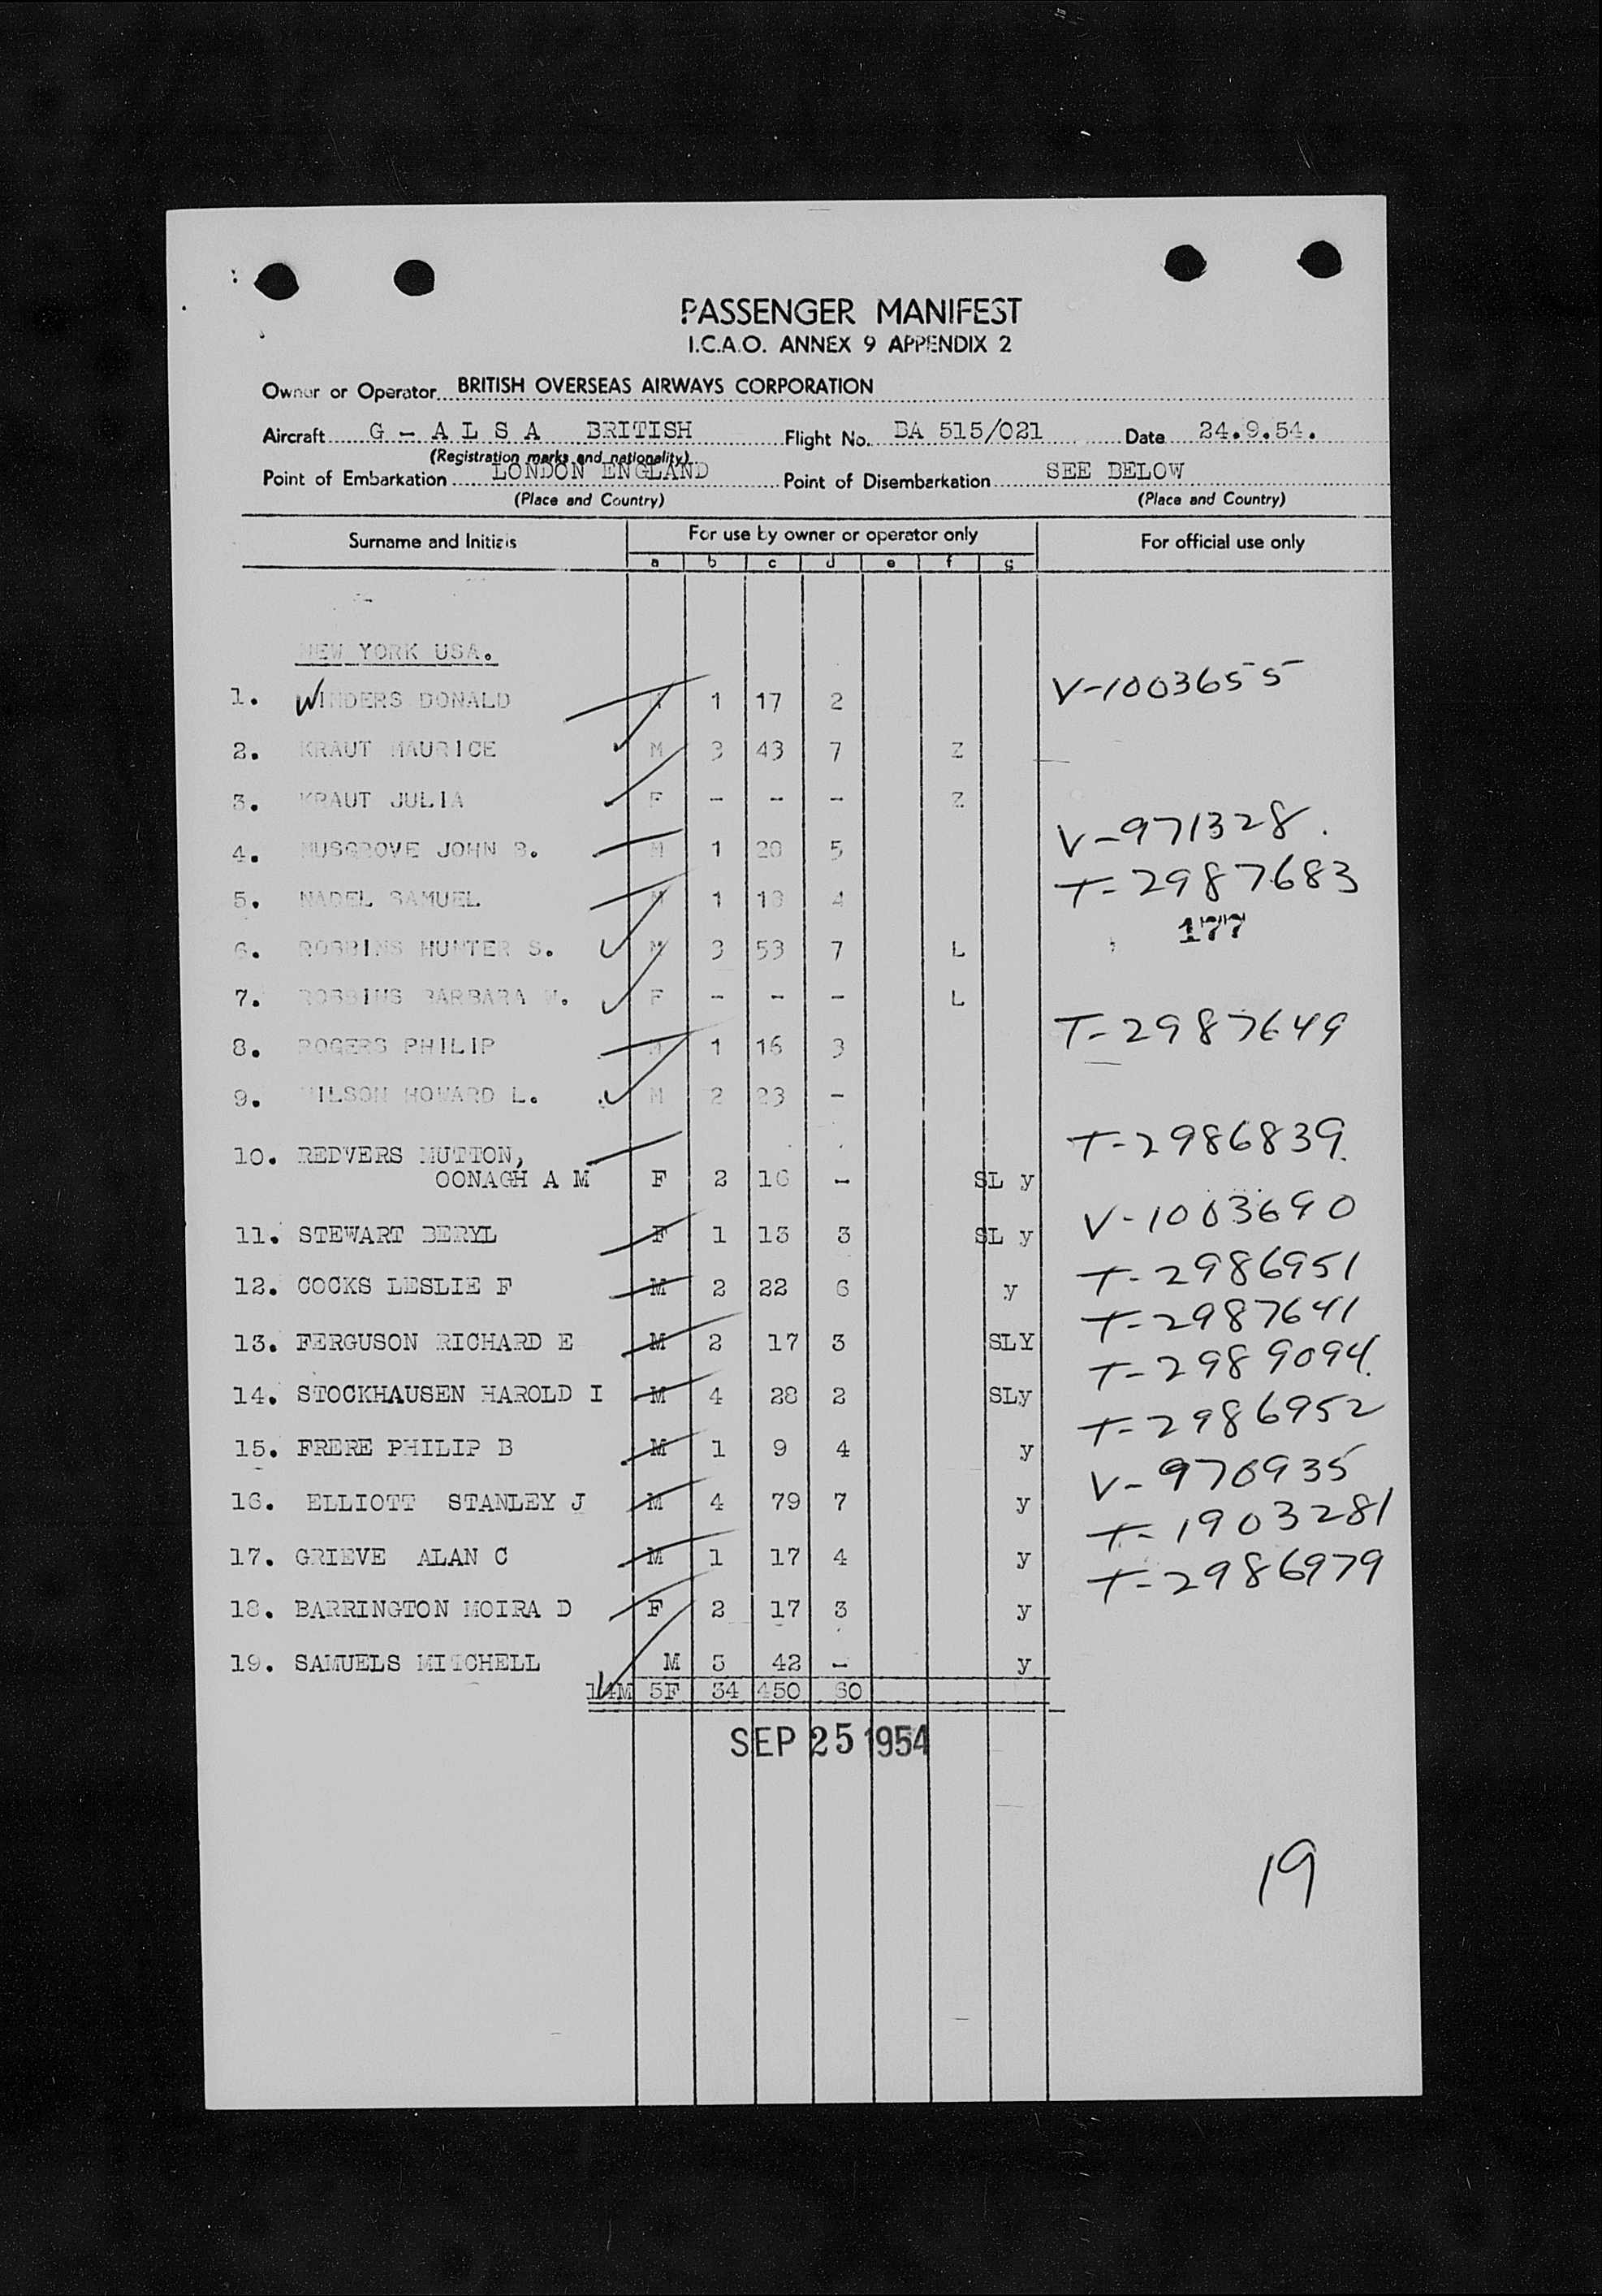 PASSENGER MANIFEST
I.C.A.O. ANNEX 9 APPENDIX 2
Owner or Operator BRITISH OVERSEAS AIRWAYS CORPORATION
Aircraft G - A L S A BRITISH Flight No. BA 515/021 Date 24.9.54.
(Registration marks and nationality)
Point of Embarkation LONDON ENGLAND Point of Disembarkation SEE BELOW
(Place and Country) (Place and Country)
Surname and Initials For use by owner or operator only For official use only
a b c d e f g
NEW YORK USA.
1. WINDERS DONALD 1 17 2 V-1003655
2. KRAUT MAURICE M 3 43 7 Z
3. KRAUT JULIA F - - - Z
4. MUSGROVE JOHN B. M 1 20 5 V-971328.
5. NADEL SAMUEL M 1 18 4 T-2987683
177
6. ROBBINS HUNTER S. M 3 53 7 L
7. ROBBINS BARBARA W. F - - - L
8. ROGERS PHILIP M 1 16 3 T-2987649
9. WILSON HOWARD L. M 2 23 -
10. REDVERS MUTTON, T-2986839
OONAGH A M F 2 16 - SL y
11. STEWART BERYL F 1 13 3 SL y V-1003690
12. COCKS LESLIE F M 2 22 6 y T-2986951
13. FERGUSON RICHARD E M 2 17 3 SLY T-2987641
14. STOCKHAUSEN HAROLD I M 4 28 2 SLy T-2989094
15. FRERE PHILIP B M 1 9 4 y T-2986952
16. ELLIOTT STANLEY J M 4 79 7 y V-970935
17. GRIEVE ALAN C M 1 17 4 y T-1903281
18. BARRINGTON MOIRA D F 2 17 3 y T-2986979
19. SAMUELS MITCHELL M 5 42 - y
14M 5F 34 450 60
SEP 25 1954
19